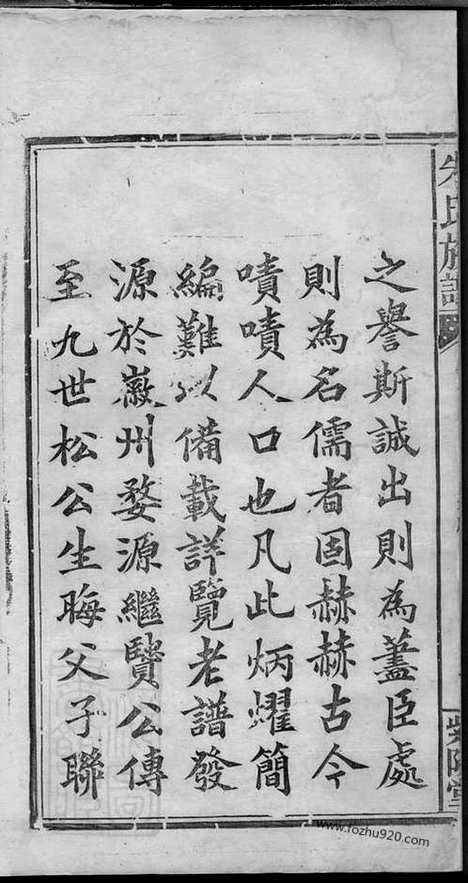 朱氏族譜
紫陽堂
之譽斯誠出則為藎臣處
則為名儒者固赫赫古今
嘖嘖人口也凡此炳耀簡
編難以備載詳覽老譜發
源於徽州婺源繼賢公傳
至九世松公生晦父子聯
www.fozhu920.com